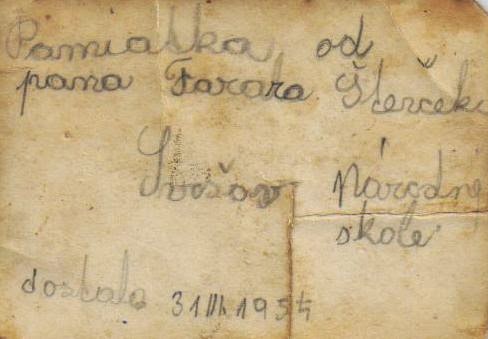 Pamiatka od
pana Farara Šterčeku
Svošov Národnej
skole
dostala 31 III. 1954